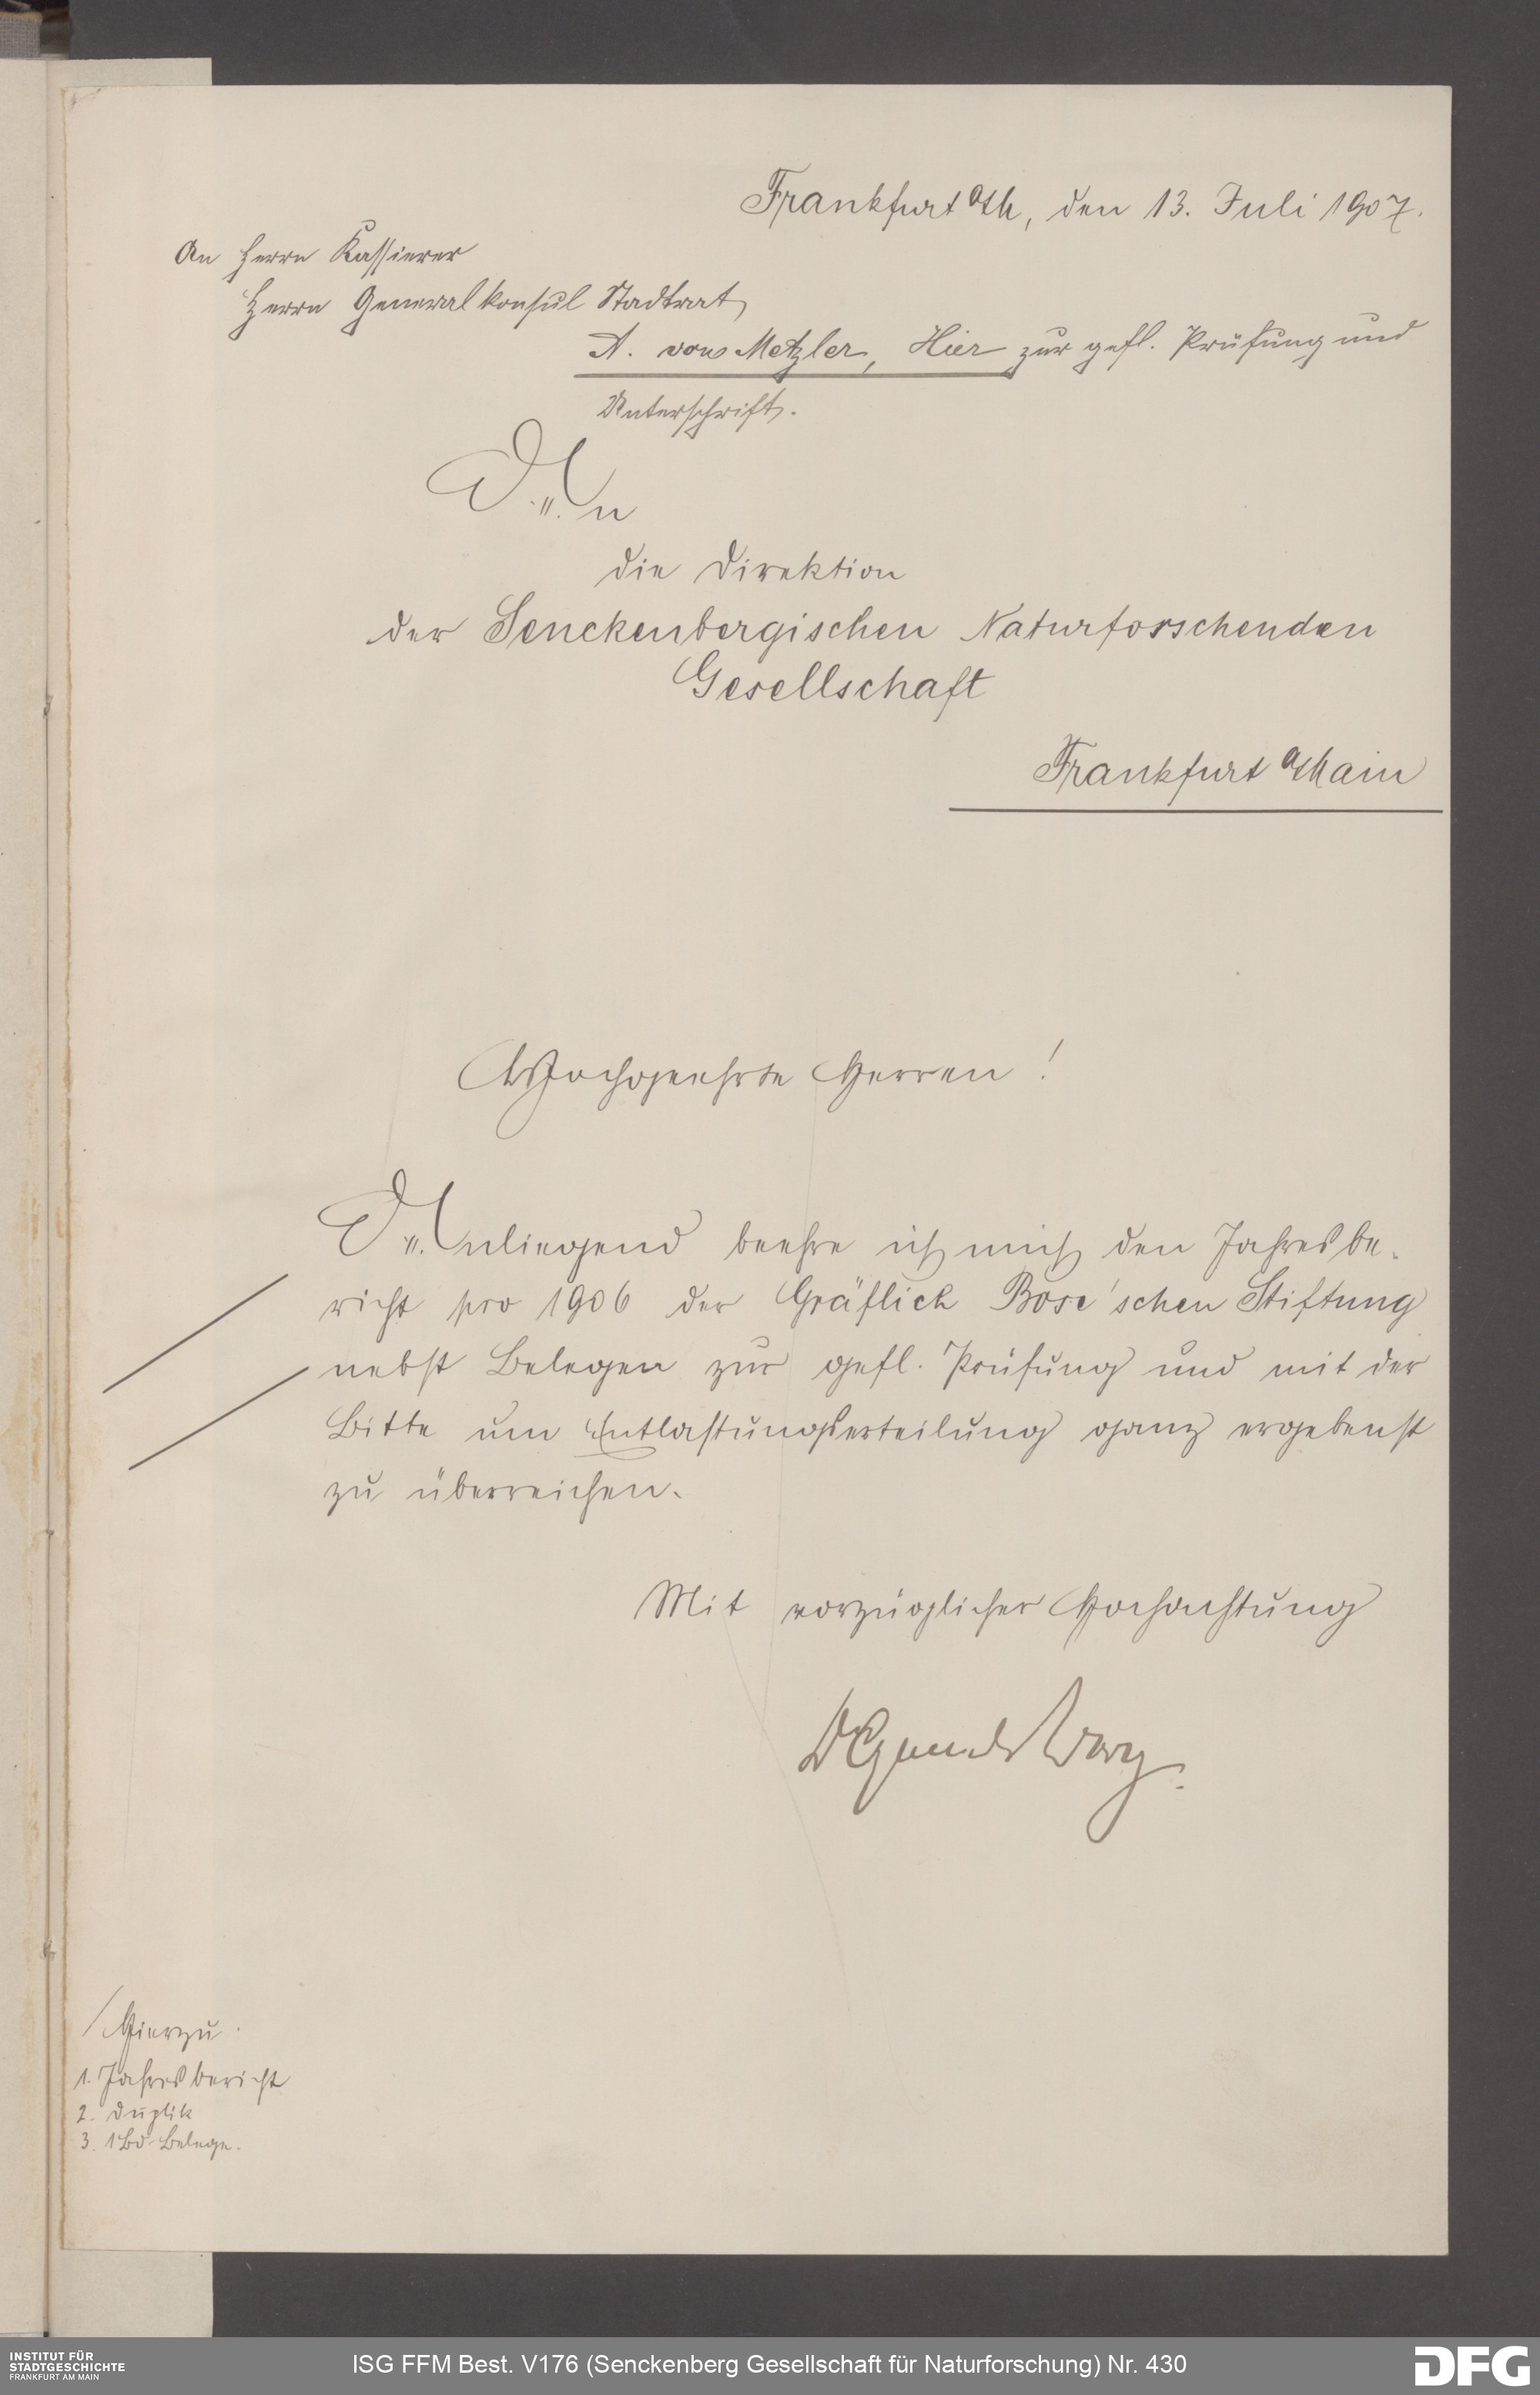 Frankfurt a/M, den 13. Juli 1907.
An Herrn Kassierer
Herrn Generalkonsul Stadtrat
A. von Metzler, Hier zur gefl. Prüfung und
Unterschrift.
An
die Direktion
der Senckenbergischen Naturforschenden
Gesellschaft
Frankfurt a/Main
Hochgeehrte Herren!
Anliegend beehre ich mich den Jahresbe-
richt pro 1906 der Gräflich Bose'schen Stiftung
nebst Belegen zur gefl. Prüfung und mit der
Bitte um Entlastungserteilung ganz ergebenst
zu überreichen.
Mit vorzüglicher Hochachtung
Hierzu
1. Jahresbericht
2. Duplik
3. 1 Bd Belege.
INSTITUT FÜR
STADTGESCHICHTE
FRANKFURT AM MAIN
ISG FFM Best. V176 (Senckenberg Gesellschaft für Naturforschung) Nr. 430
DFG